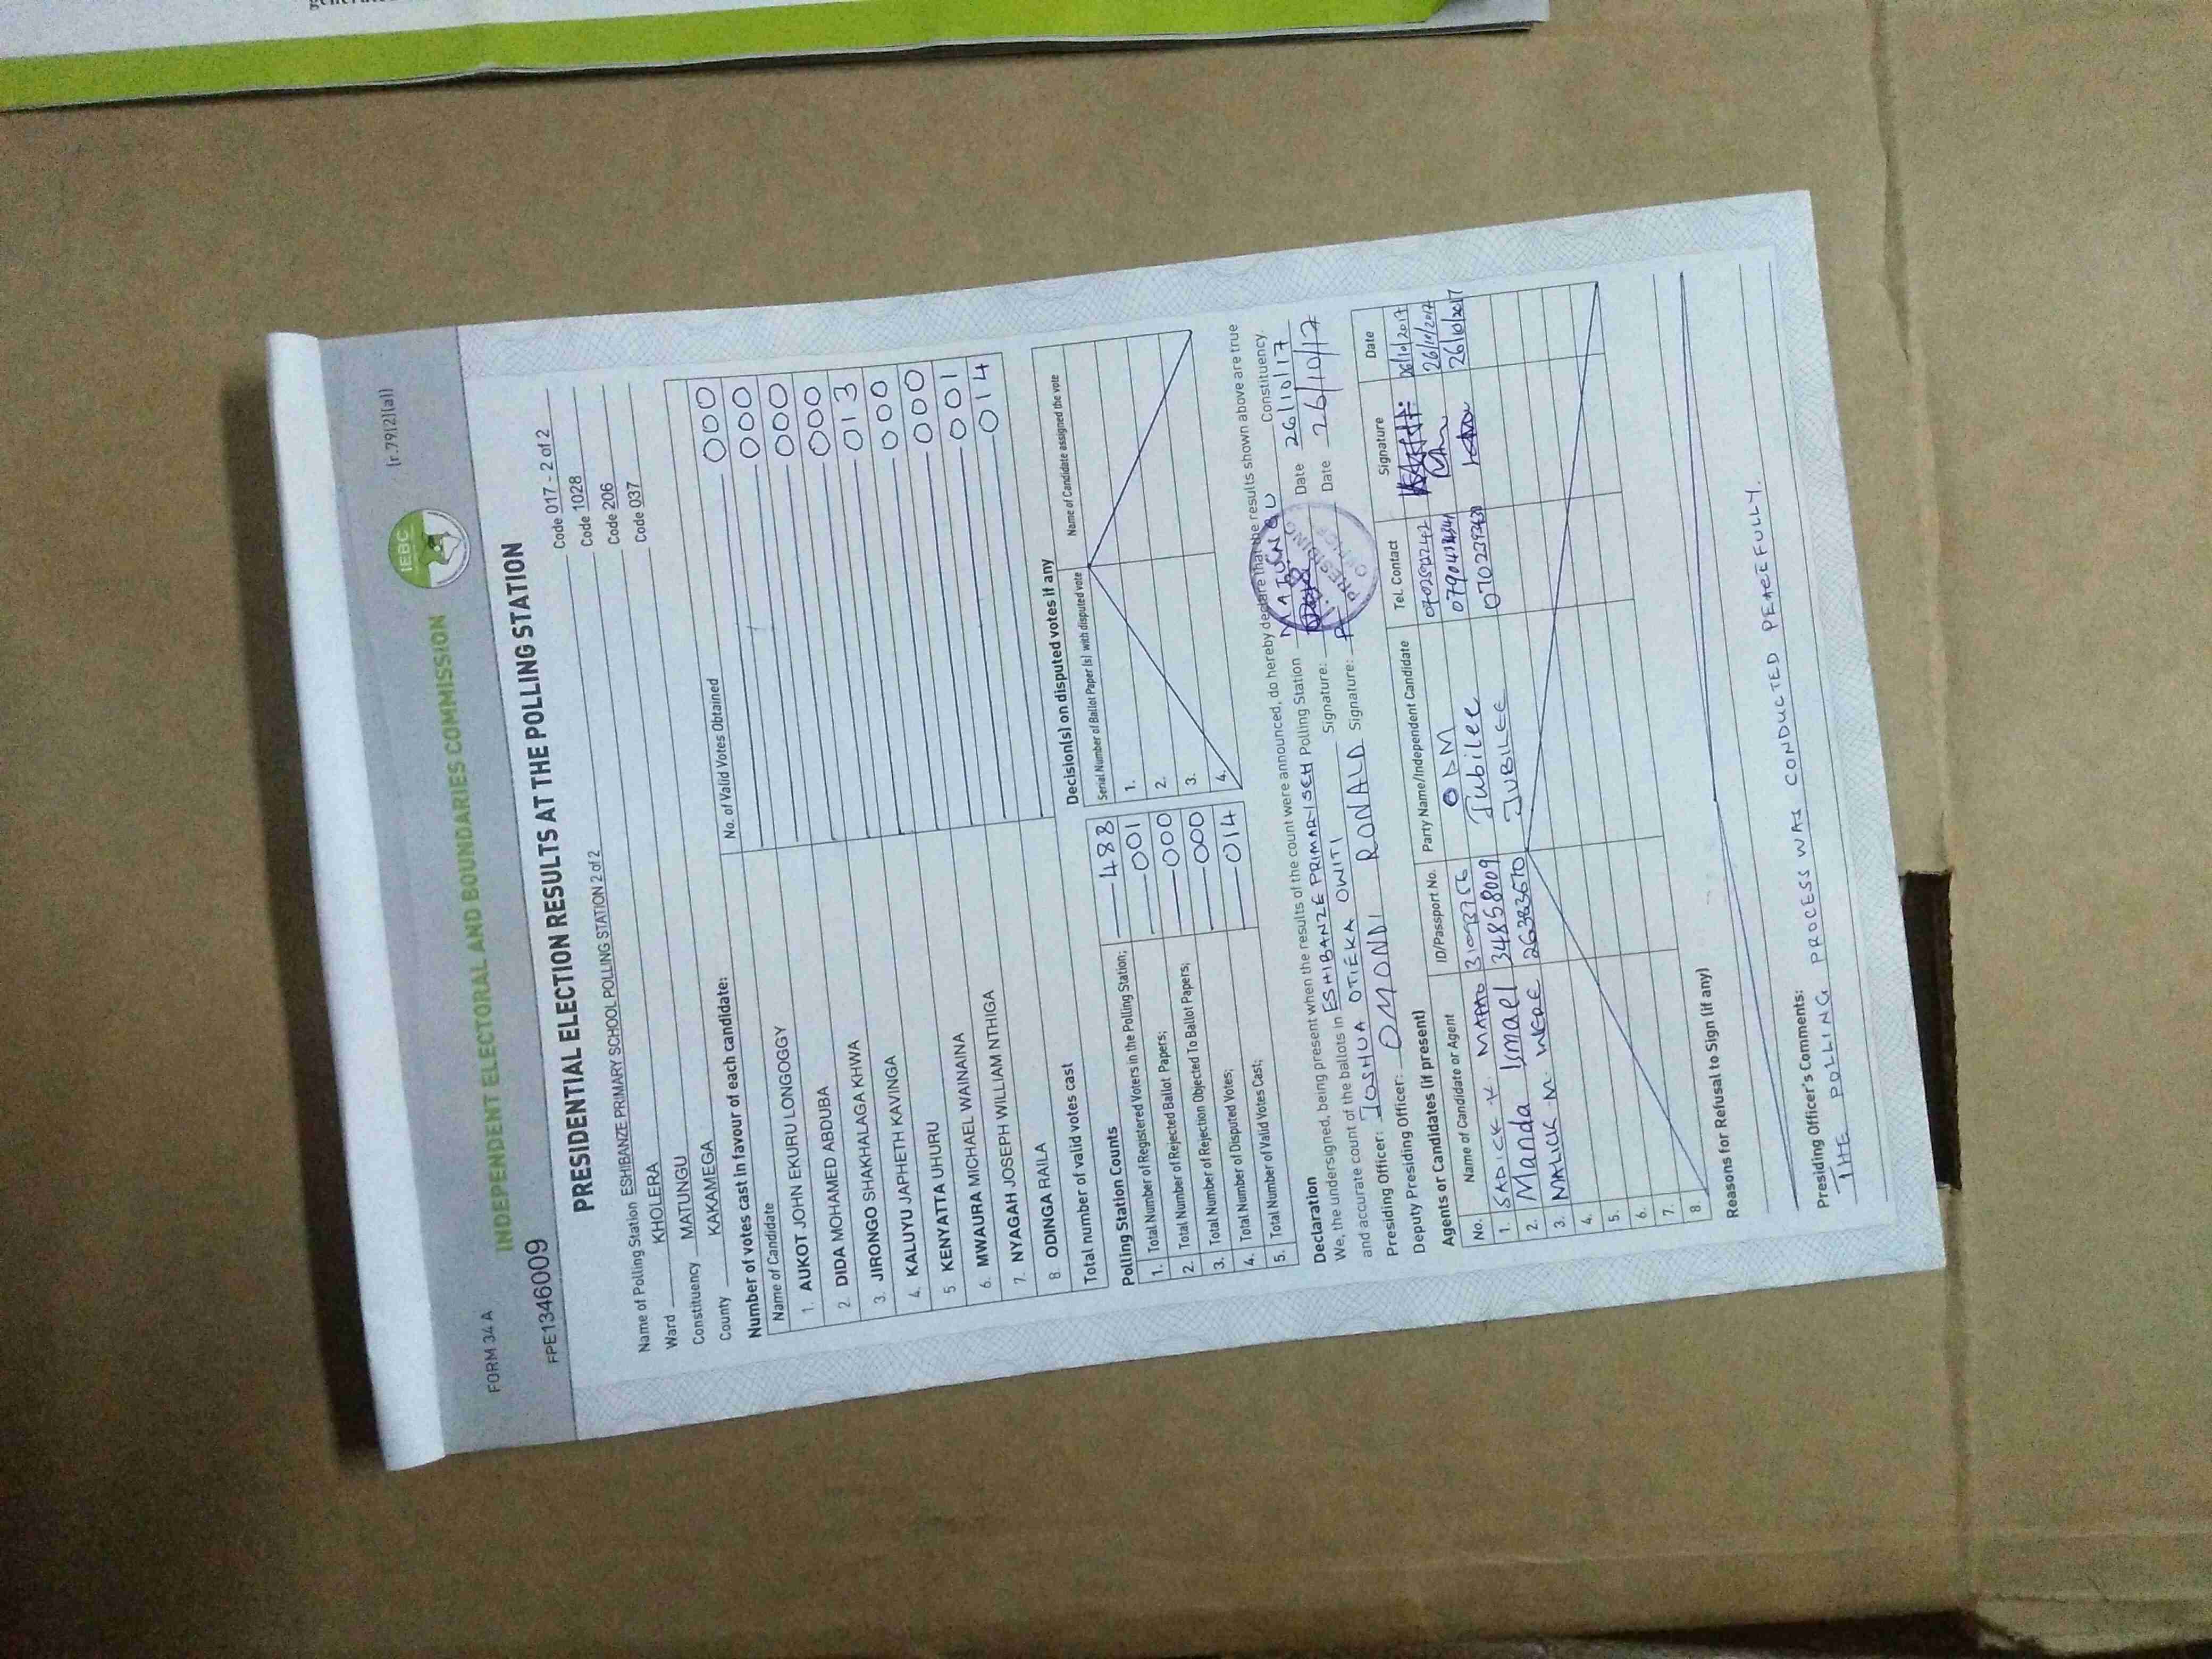 FORM 34 A
(r.79(2)(a))
IEBC
INDEPENDENT ELECTORAL AND BOUNDARIES COMMISSION
FPE1346009
PRESIDENTIAL ELECTION RESULTS AT THE POLLING STATION
Name of Polling Station ESHIBANZE PRIMARY SCHOOL POLLING STATION 2 of 2 Code 017 - 2 of 2
Ward KHOLERA Code 1028
Constituency MATUNGU Code 206
County KAKAMEGA Code 037
Number of votes cast in favour of each candidate:
Name of Candidate No. of Valid Votes Obtained
1. AUKOT JOHN EKURU LONGOGGY 000
2 DIDA MOHAMED ABDUBA 000
3. JIRONGO SHAKHALAGA KHWA 000
4. KALUYU JAPHETH KAVINGA 000
5 KENYATTA UHURU 013
6. MWAURA MICHAEL WAINAINA 000
7. NYAGAH JOSEPH WILLIAM NTHIGA 000
8. ODINGA RAILA 001
Total number of valid votes cast 014
Polling Station Counts
1. Total Number of Registered Voters in the Polling Station; 488
2. Total Number of Rejected Ballot Papers; 001
3. Total Number of Rejection Objected To Ballot Papers; 000
4. Total Number of Disputed Votes; 000
5. Total Number of Valid Votes Cast; 014
Decision(s) on disputed votes if any
Serial Number of Ballot Paper (s) with disputed vote Name of Candidate assigned the vote
1.
2.
3.
4.
Declaration
We, the undersigned, being present when the results of the count were announced, do hereby declare that the results shown above are true
and accurate count of the ballots in ESHIBANZE PRIMARI SCH Polling Station MATUNGU Constituency.
Presiding Officer: JOSHUA OTIEKA OWITI Signature: Date 26/10/17
Deputy Presiding Officer: OMONDI RONALD Signature: Date 26/10/17
PRESIDING OFFICER
Agents or Candidates (if present)
No. Name of Candidate or Agent ID/Passport No. Party Name/Independent Candidate Tel. Contact Signature Date
1. SADICK K. ODM 26/10/2017
2. Manda Ismael 34858009 Jubilee 26/10/2017
3. MALICK M. WERE JUBILEE 26/10/2017
4.
5.
6.
7.
8.
Reasons for Refusal to Sign (if any)
Presiding Officer's Comments:
THE POLLING PROCESS WAS CONDUCTED PEACEFULLY.